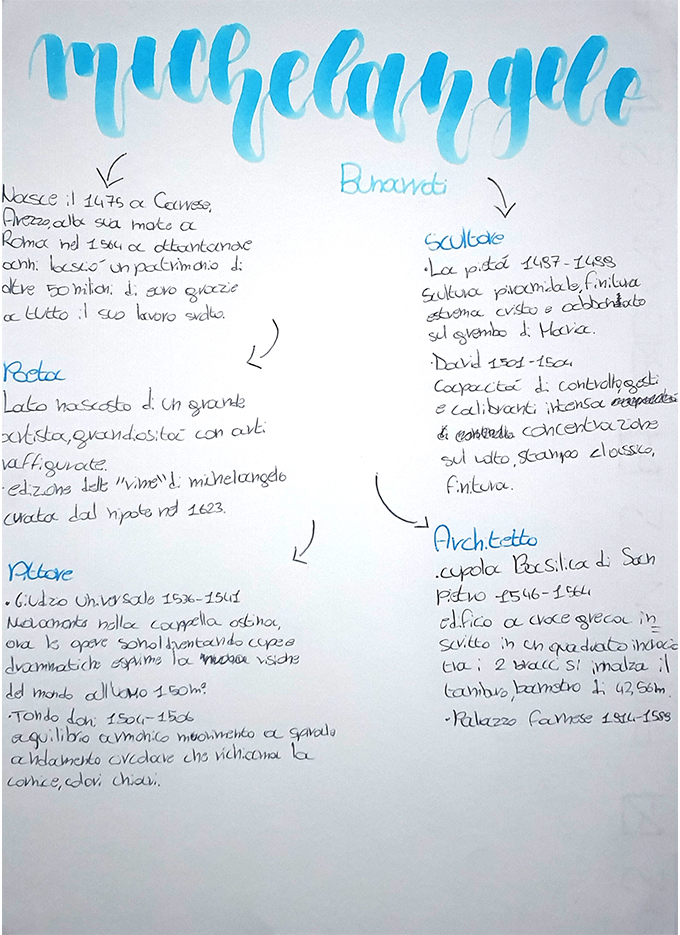 michelangelo
Bunarroti
Nasce il 1475 a Caprese,
Arezzo, alla sua morte a
Roma nel 1564 a ottantanove
anni lasciò un patrimonio di
oltre 50 milioni di euro grazie
a tutto il suo lavoro svolto.
Poeta
Lato nascosto di un grande
artista, grandiosità con arti
raffigurate.
· edizione delle "rime" di michelangelo
curata dal nipote nel 1623.
Pittore
· Giudzio universale 1536-1541
Nuovamente nella cappella sistina,
ora le opere diventando cupe e
drammatiche esprime la visione
del mondo 150 m².
· Tondo doni 1504-1506
equilibrio armonico movimento a spirale
andamento circolare che richiama la
cornice, colori chiari.
Scultore
· La pietà 1497-1499
scultura piramidale, finitura
estrema cristo e abbandonato
sul grembo di Maria.
· David 1501-1504
Capacità di controllo, gesti
e calibranti intensa
concentrazione
sul volto, stampo classico,
finitura.
Architetto
· cupola Basilica di San
Pietro 1546-1564
edifico a croce greca in
scritto in un quadrato incrocio
tra i 2 bracci si innalza il
tamburo, diametro di 42,56m.
· Palazzo farnese 1514-1589